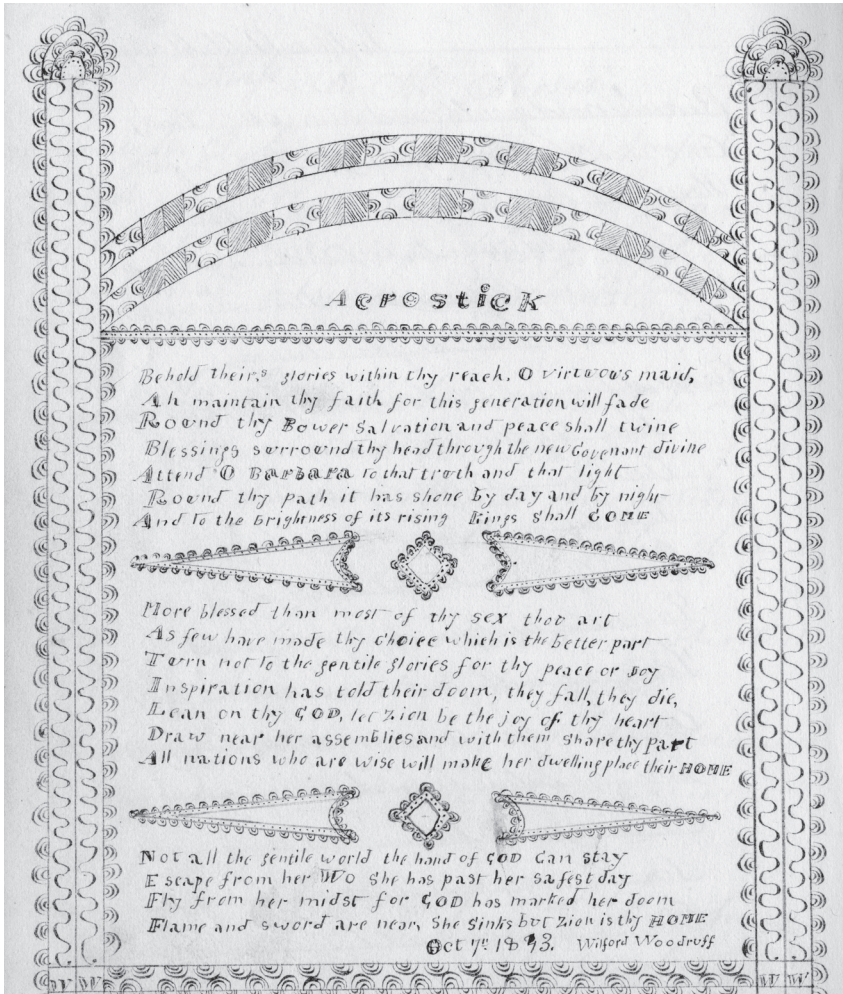 Acrostick
Behold their,s glories within thy reach, O virtuous maid,
Ah maintain thy faith for this generation will fade
Round thy Bower Salvation and peace shall twine
Blessings surround thy head through the new Covenant divine
Attend O BARBARA to that truth and that light
Round thy path it has shone by day and by night
And to the brightness of its rising Kings Shall COME
More blessed than most of thy sex thou art
As few have made thy choice which is the better part
Turn not to the gentile glories for thy peace or Joy
Inspiration has told their doom, they fall, they die,
Lean on thy GOD, let Zion be the joy of thy heart
Draw near her assemblies and with them Share thy part
All nations who are wise will make her dwelling place their HOME
Not all the gentile world the hand of GOD Can stay
Escape from her WO She has past her safest day
Fly from her midst for GOD has marked her doom
Flame and sword are near, She Sinks but Zion is thy HOME
Oct 7th 1843. Wilford Woodruff
W W W W